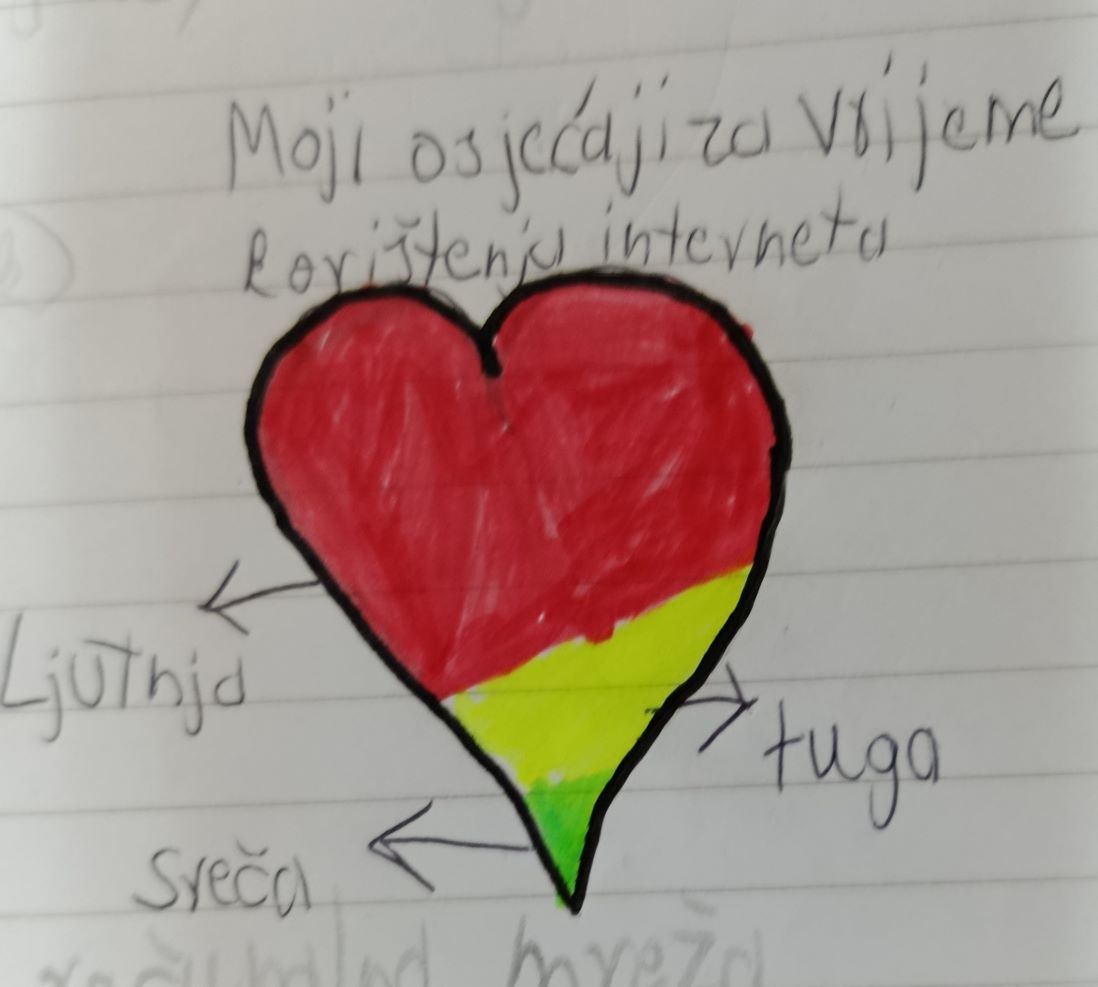 Moji osjećaji za vrijeme
korištenja interneta
Ljutnja
tuga
Sreča
mreža